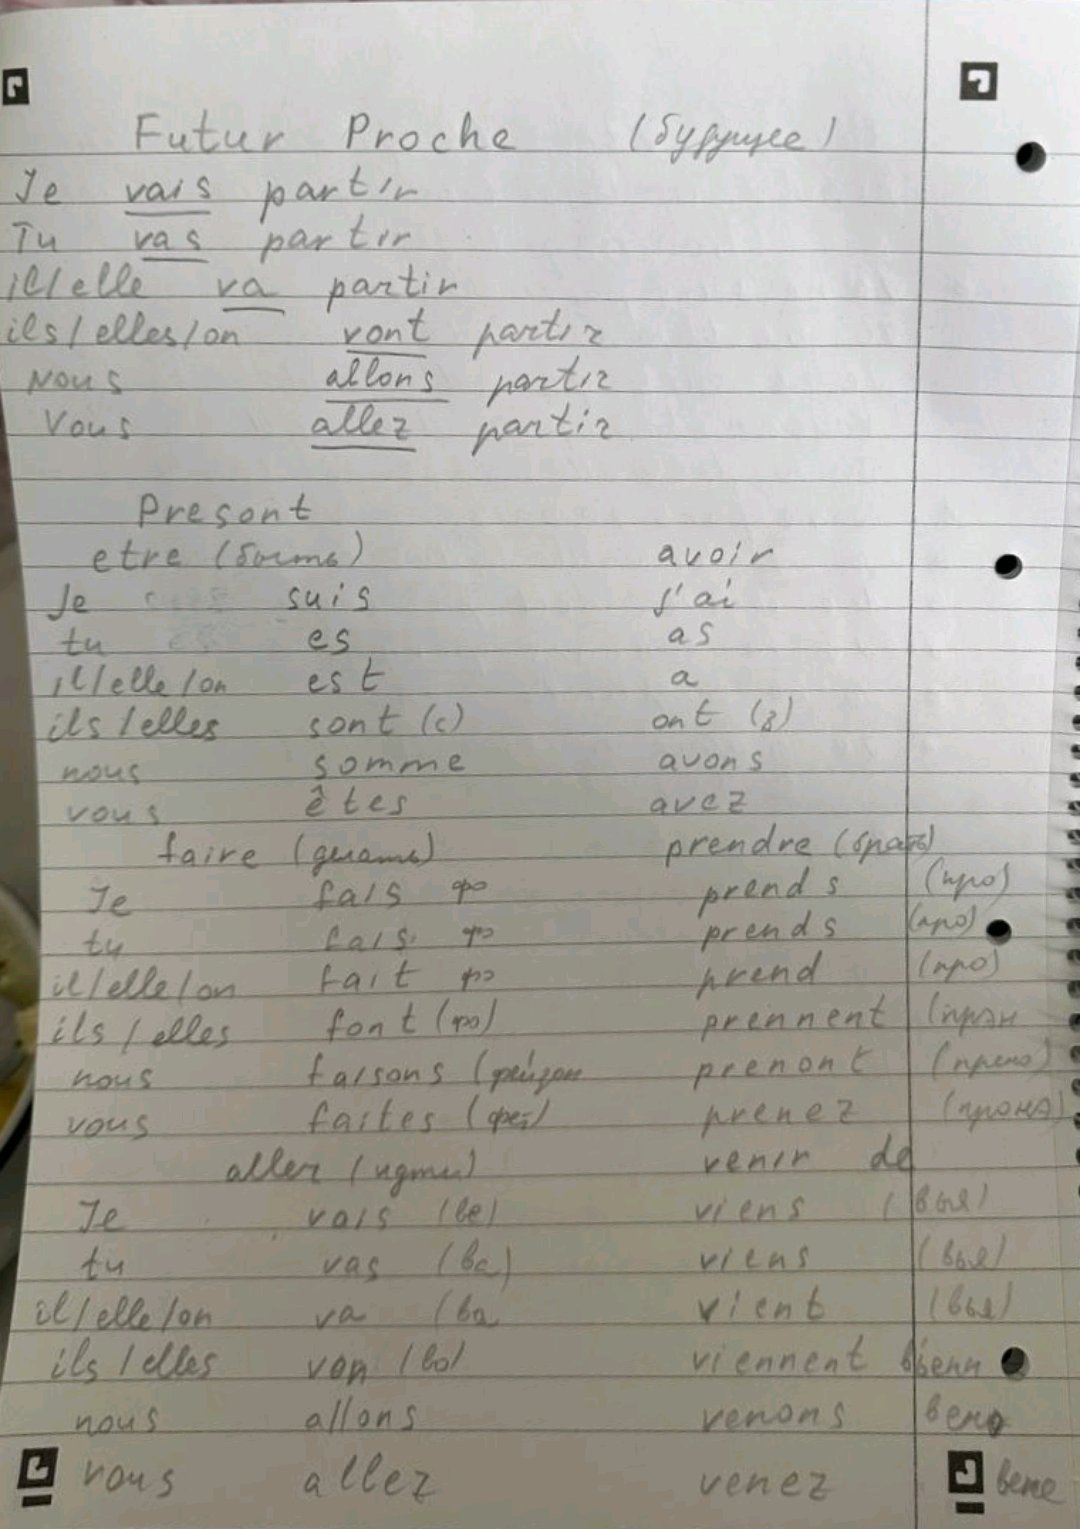 Futur Proche (будущее)
Je vais partir
Tu vas partir
il/elle va partir
ils/elles/on vont partir
Nous allons partir
Vous allez partir
Presont
etre (быть) avoir
Je suis j'ai
tu es as
il/elle/on est a
ils/elles sont (с) ont (з)
nous somme avons
vous êtes avez
faire (делать) prendre (брать)
Je fais фэ prends (про)
tu fais фэ prends (про)
il/elle/on fait фэ prend (про)
ils/elles font (фо) prennent (прэн
nous faisons (фейзон prenont (прено)
vous faites (фет) prenez (пронэ)
aller (идти) venir de
Je vais (ве) viens (вья)
tu vas (ва) viens (вья)
il/elle/on va (ва vient (вья)
ils/elles von (во) viennent вьенн
nous allons venons вено
vous allez venez вене